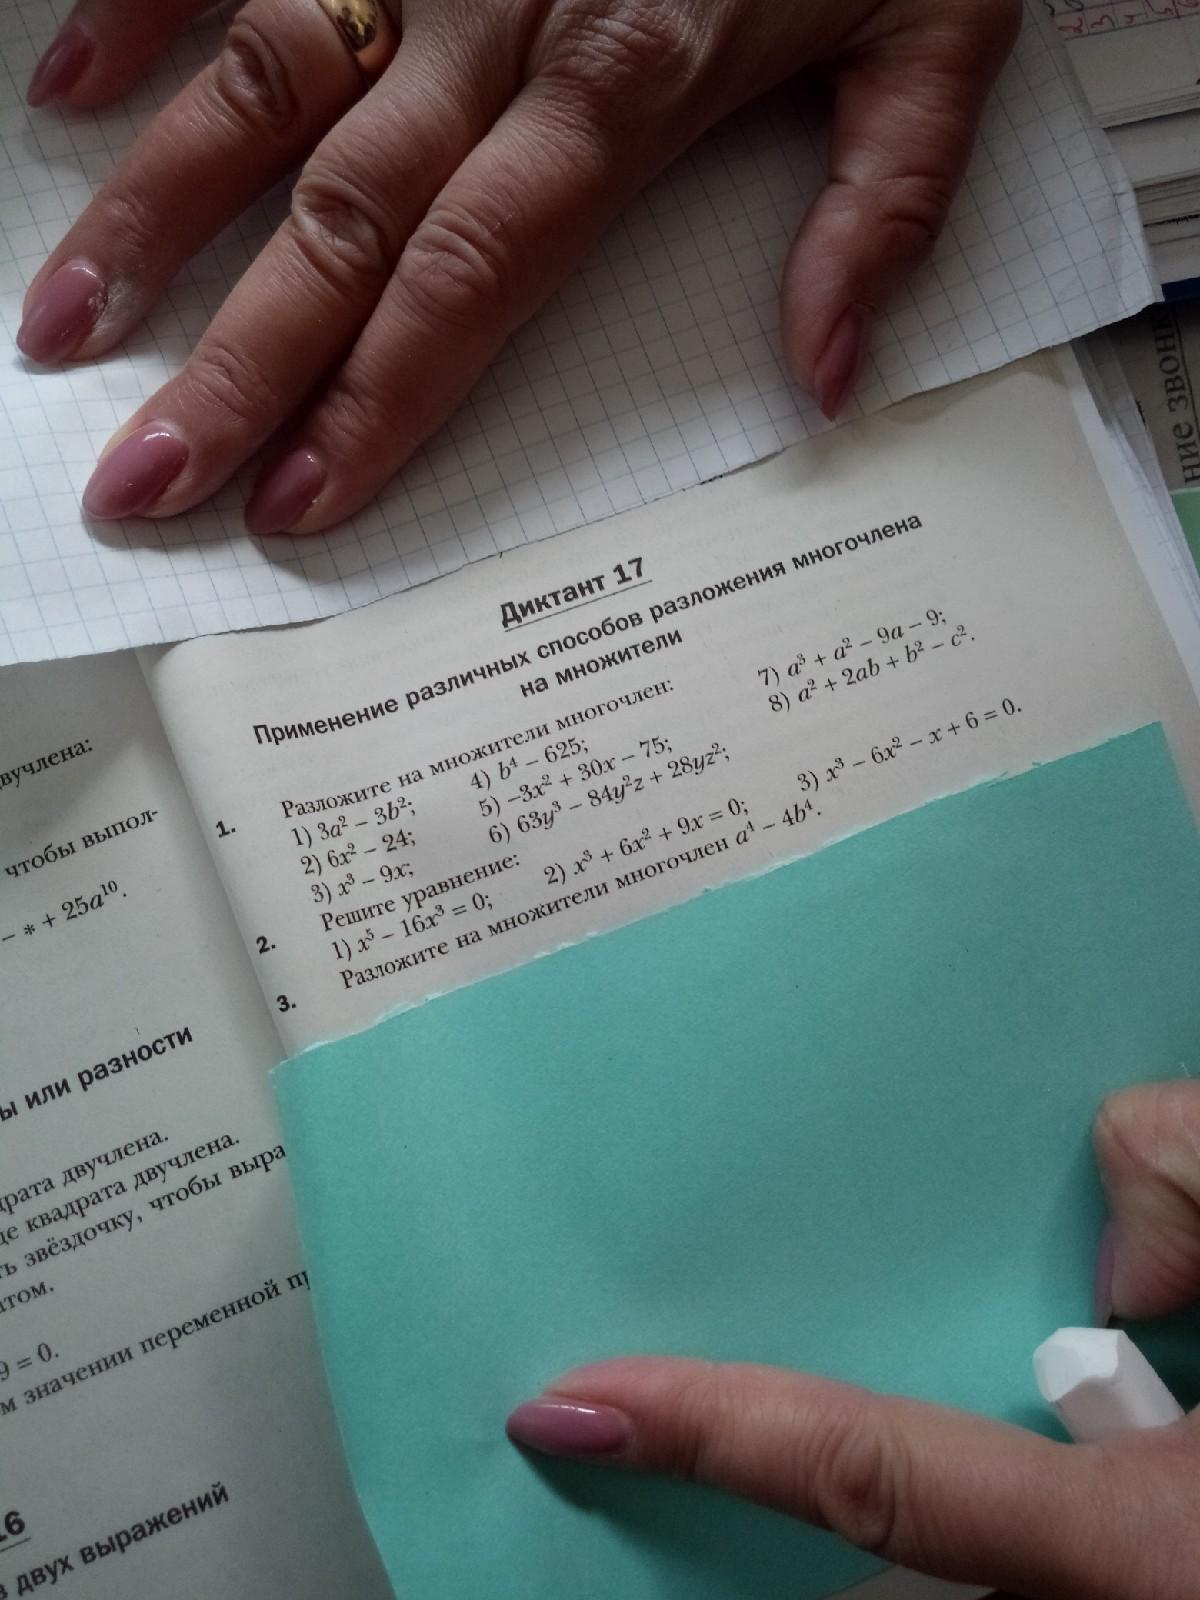 Диктант 17
Применение различных способов разложения многочлена
на множители
1. Разложите на множители многочлен:
1) 3a² – 3b²; 4) b⁴ – 625; 7) a³ + a² – 9a – 9;
2) 6x² – 24; 5) –3x² + 30x – 75; 8) a² + 2ab + b² – c².
3) x³ – 9x; 6) 63y³ – 84y²z + 28yz²;
2. Решите уравнение:
1) x⁵ – 16x³ = 0; 2) x³ + 6x² + 9x = 0; 3) x³ – 6x² – x + 6 = 0.
3. Разложите на множители многочлен a⁴ – 4b⁴.
вучлена:
чтобы выпол-
– * + 25a¹⁰.
ы или разности
драта двучлена.
де квадрата двучлена.
ть звёздочку, чтобы выра
том.
9 = 0.
м значении переменной пр
16
в двух выражений
ние звонк
2 3 4 5